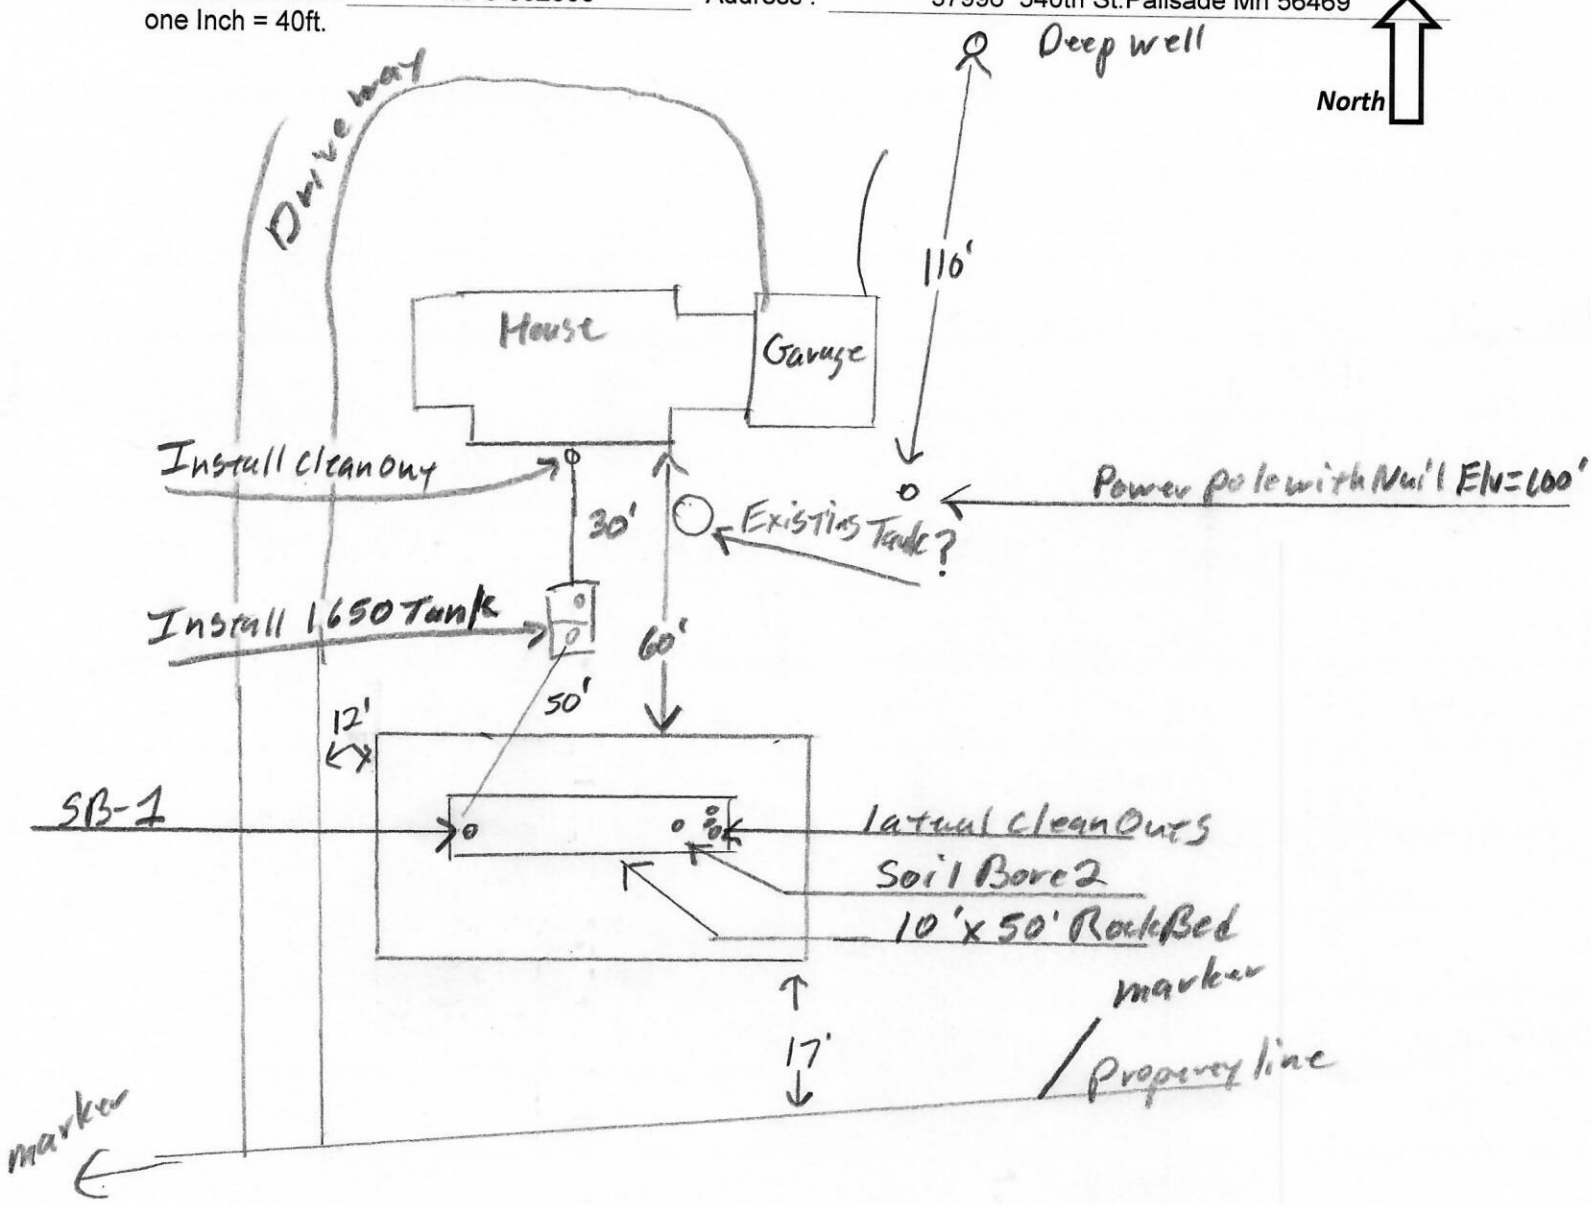 Address : 37998 340th St.Palisade Mn 56469
one Inch = 40ft.
Deep well
North
Drive way
116'
House
Garage
Install cleanout
Power pole with Nail Elv=100'
30'
Existing Tank?
Install 1650 Tank
60'
50'
12'
SB-1
latual cleanOuts
Soil Bore 2
10' x 50' RockBed
marker
17'
Properey line
marker